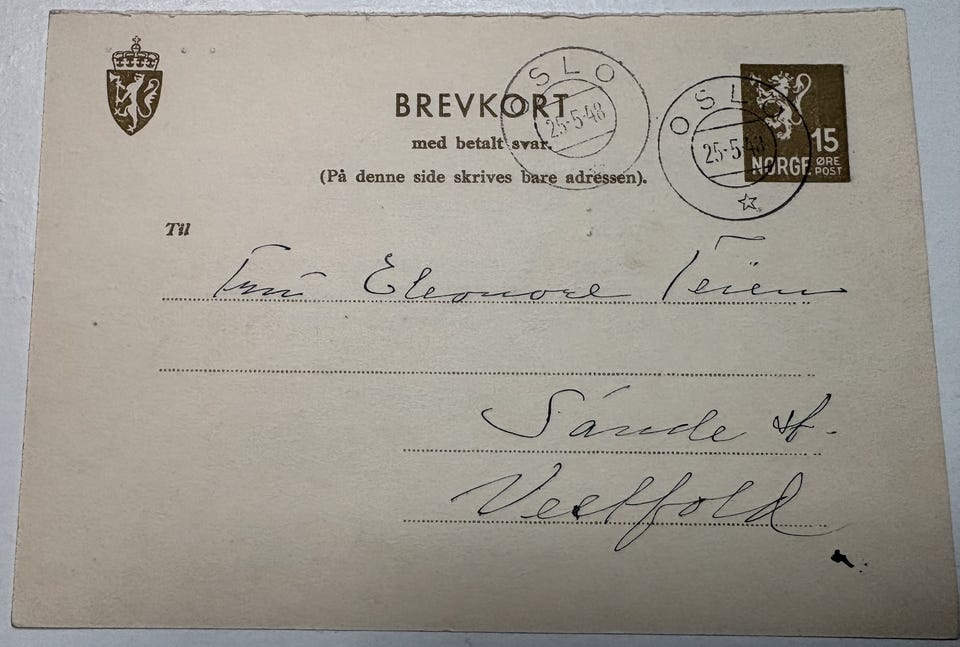 BREVKORT
med betalt svar.
(På denne side skrives bare adressen).
OSLO
25-5-48
OSLO
25-5-48
15
NORGE ØRE POST
Til
Fru Eleonore Teien
Sande st.
Vestfold